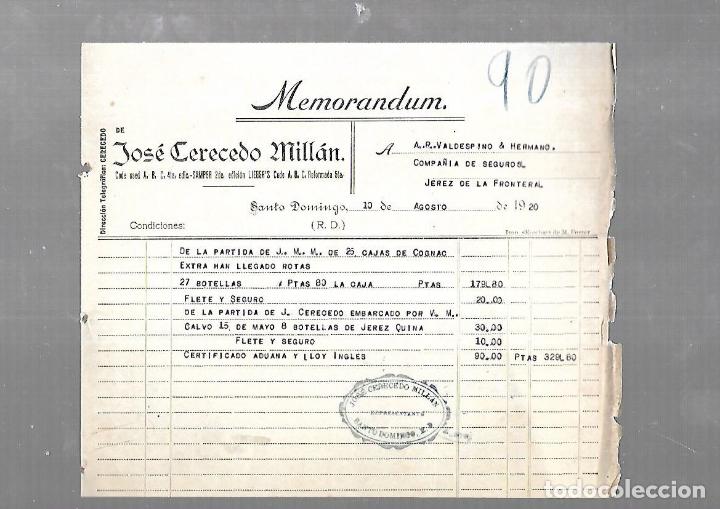 90
Memorandum.
DE
José Cerecedo Millán.
Code used A. B. C. 4ta. edic.-SAMPER 2da. edición LIEBER'S Code A. B. C. Reformada 5ta.
Dirección Telegráfica: CERECEDO
A A.R.VALDESPINO & HERMANO.
COMPAÑIA DE SEGUROS.
JÉREZ DE LA FRONTERA.
Santo Domingo, 10 de AGOSTO de 1920
Condiciones: (R. D.)
DE LA PARTIDA DE J. M. M. DE 25 CAJAS DE COGNAC
EXTRA HAN LLEGADO ROTAS
27 BOTELLAS PTAS 80 LA CAJA PTAS 179.80
FLETE Y SEGURO 20.00
DE LA PARTIDA DE J. CERECEDO EMBARCADO POR V. M.
CALVO 15 DE MAYO 8 BOTELLAS DE JEREZ QUINA 30.00
FLETE Y SEGURO 10.00
CERTIFICADO ADUANA Y LLOY INGLES 90.00 PTAS 329.80
JOSÉ CERECEDO MILLÁN
REPRESENTANTE
SANTO DOMINGO, R. D.
todocoleccion.net